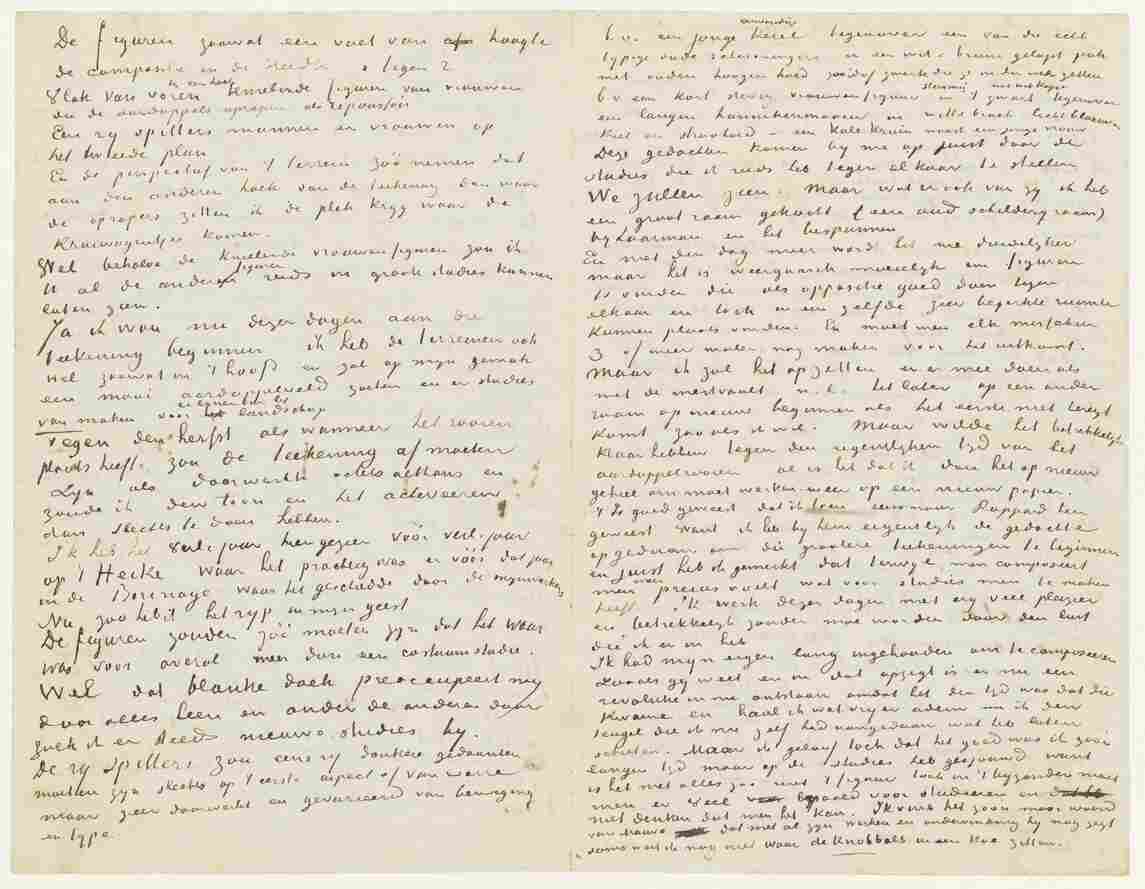 De figuren zoowat een voet van hoogte
de compositie en de breedte
Vlak van voren knielende figuren van vrouwen
die de aardappels oprapen als repoussoir
Een ry spitters mannen en vrouwen op
het tweede plan
En de perspectief van 't terrein zóó nemen dat
aan den anderen hoek van de teekening dan waar
de oprapers zitten ik de plek kryg waar de
kruiwagentjes komen.
Wel behalve de knielende vrouwenfiguren zou ik
U al de andere figuren reeds in groote studies kunnen
laten zien.
Ja ik wou nu dezer dagen aan die
teekening beginnen ik heb de terreinen ook
wel zoowat in 't hoofd en zal op myn gemak
een mooi aardappelveld zoeken en er studies
van maken voor het landschap
Tegen den herfst als wanneer het rooien
plaats heeft zou de teekening af moeten
zyn als doorwerkte schets althans en
zoude ik den toon en het acheveeren
dan slechts te doen hebben.
Ik heb het verl. jaar hier gezien vóór verl. jaar
op 't Heike waar het prachtig was en vóór dat jaar
in de Borinage waar het geschiedde door de mynwerkers
Nu zoo heb ik het ryp in myn geest
De figuren zouden zóó moeten zyn dat het waar
was voor overal meer dan een costuumstudie.
Wel dat blanke doek preoccupeert my
door alles heen en onder de anderen door
zoek ik er steeds nieuwe studies by.
De ry spitters zou eens ry donkere gedaanten
moeten zyn slechts op 't eerste aspect of van verre
maar zeer doorwerkt en gevarieerd van beweging
en type.
b.v. een jonge kerel tegenover een van die echt
typige oude scheveningers in een wit & bruin gelapt pak
met ouden hoogen hoed
b.v een kort stevig vrouwenfiguur in 't zwart tegenover
een langen hannekenmaaier in witte broek lichtblaauwen
kiel en stroohoed – een kale kruin naast een jonge vrouw
Deze gedachten komen by me op juist door de
studies die ik reeds heb tegen elkaar te stellen
We zullen zien. Maar wat er ook van zy ik heb
een groot raam gekocht (een oud schilderyraam)
by Laarman en het bespannen
En met den dag meer word het me duidelyker
maar het is weergaasch moeielyk om figuren
te vinden die als oppositie goed doen tegen
elkaar en toch in een zelfde zeer beperkte ruimte
kunnen plaats vinden. En moet men elk misschien
3 of meer malen nog maken voor het uitkomt.
Maar ik zal het opzetten en er mee doen als
met de mestvaalt n.l. het laten op een ander
raam op nieuw beginnen als het eerste niet teregt
komt zoo als ik wil. Maar wilde het betrekkelyk
klaar hebben tegen den eigenlyken tyd van het
aardappelrooien al is het dat ik dan het op nieuw
geheel om moet werken weer op een nieuw papier.
't Is goed geweest dat ik toen eens naar Rappard ben
geweest want ik heb by hem eigenlyk de gedachte
opgedaan om die grootere teekeningen te beginnen
en juist heb ik gemerkt dat terwyl men composeert
men meer precies voelt wat voor studies men te maken
heeft. Ik werk dezer dagen met erg veel plezier
en betrekkelyk zonder moe worden door den lust
die ik er in heb.
Ik had myn eigen lang ingehouden om te composeeren
zooals gy weet en in dat opzigt is er nu een
revolutie in me ontstaan omdat het den tyd was dat die
kwame en haal ik wat vryer adem nu ik den
teugel die ik me zelf had aangedaan wat heb laten
schieten. Maar ik geloof toch dat het goed was ik zóó
langen tyd maar op de studies heb gezwoegd want
is het met alles zoo met 't figuur toch in 't byzonder moet
men er veel voor studieeren en
niet denken dat men het kan. Ik vond het zoo'n mooi woord
van Mauve dat met al zyn werken en ondervinding hy nog zegt
soms weet ik nog niet waar de knobbels in een koe zitten.